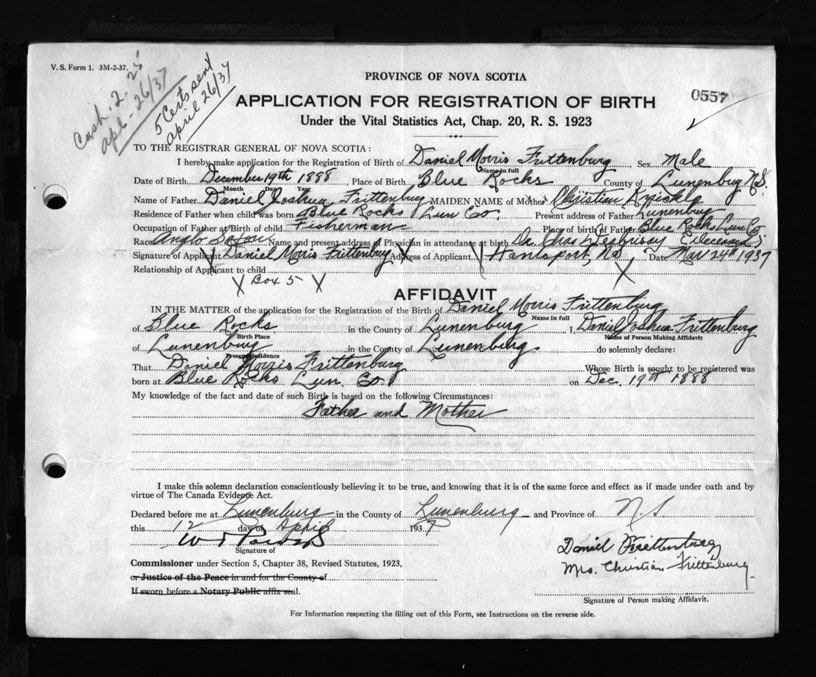 V. S. Form 1. 3M-2-37.
Cash. 2.25
Apl. 26/37
5 Certs sent
April 26/37
PROVINCE OF NOVA SCOTIA
APPLICATION FOR REGISTRATION OF BIRTH
0557
Under the Vital Statistics Act, Chap. 20, R. S. 1923
TO THE REGISTRAR GENERAL OF NOVA SCOTIA:
I hereby make application for the Registration of Birth of Daniel Morris Frittenburg Sex Male
Name in full
Date of Birth December 19th 1888, Place of Birth Blue Rocks County of Lunenburg N.S.
Month Day Year
Name of Father Daniel Joshua Frittenburg MAIDEN NAME of Mother Christian
Residence of Father when child was born Blue Rocks Lun Co. Present address of Father Lunenburg
Occupation of Father at Birth Fisherman Place of birth of Father Blue Rocks Lun Co
Race Anglo Saxon Name and present address of Physician in attendance at birth Dr Chas
Signature of Applicant Daniel Morris Frittenburg Address of Applicant Hantsport, N.S. Date Mar 24th 1937
Relationship of Applicant to child
X Box 5 X
AFFIDAVIT
IN THE MATTER of the application for the Registration of the Birth of Daniel Morris Frittenburg
Name in full
of Blue Rocks in the County of Lunenburg I, Daniel Joshua Frittenburg
Birth Place
Name of Person Making Affidavit
of Lunenburg in the County of Lunenburg do solemnly declare:
Present Residence
That Daniel Morris Frittenburg Whose Birth is sought to be registered was
born at Blue Rocks Lun. Co. on Dec. 19th 1888
My knowledge of the fact and date of such Birth is based on the following Circumstances:
Father and Mother
I make this solemn declaration conscientiously believing it to be true, and knowing that it is of the same force and effect as if made under oath and by
virtue of The Canada Evidence Act.
Declared before me at Lunenburg in the County of Lunenburg and Province of N.S.
this 12 day of April 1937
Signature of
Commissioner under Section 5, Chapter 38, Revised Statutes, 1923,
or Justice of the Peace in and for the County of
If sworn before a Notary Public affix seal.
Daniel Frittenburg
Mrs. Christian Frittenburg
Signature of Person making Affidavit.
For Information respecting the filling out of this Form, see Instructions on the reverse side.